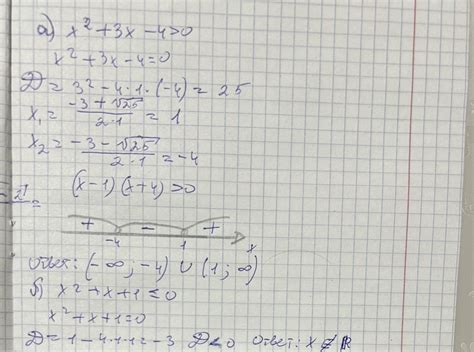 а) x² + 3x - 4 > 0
x² + 3x - 4 = 0
D = 3² - 4·1·(-4) = 25
x₁ = (-3 + √25)/(2·1) = 1
x₂ = (-3 - √25)/(2·1) = -4
(x-1)(x+4) > 0
+ - +
-4 1 x
Ответ: (-∞; -4) ∪ (1; ∞)
б) x² + x + 1 ≤ 0
x² + x + 1 = 0
D = 1 - 4·1·1 = -3 D < 0 Ответ: x ∉ R